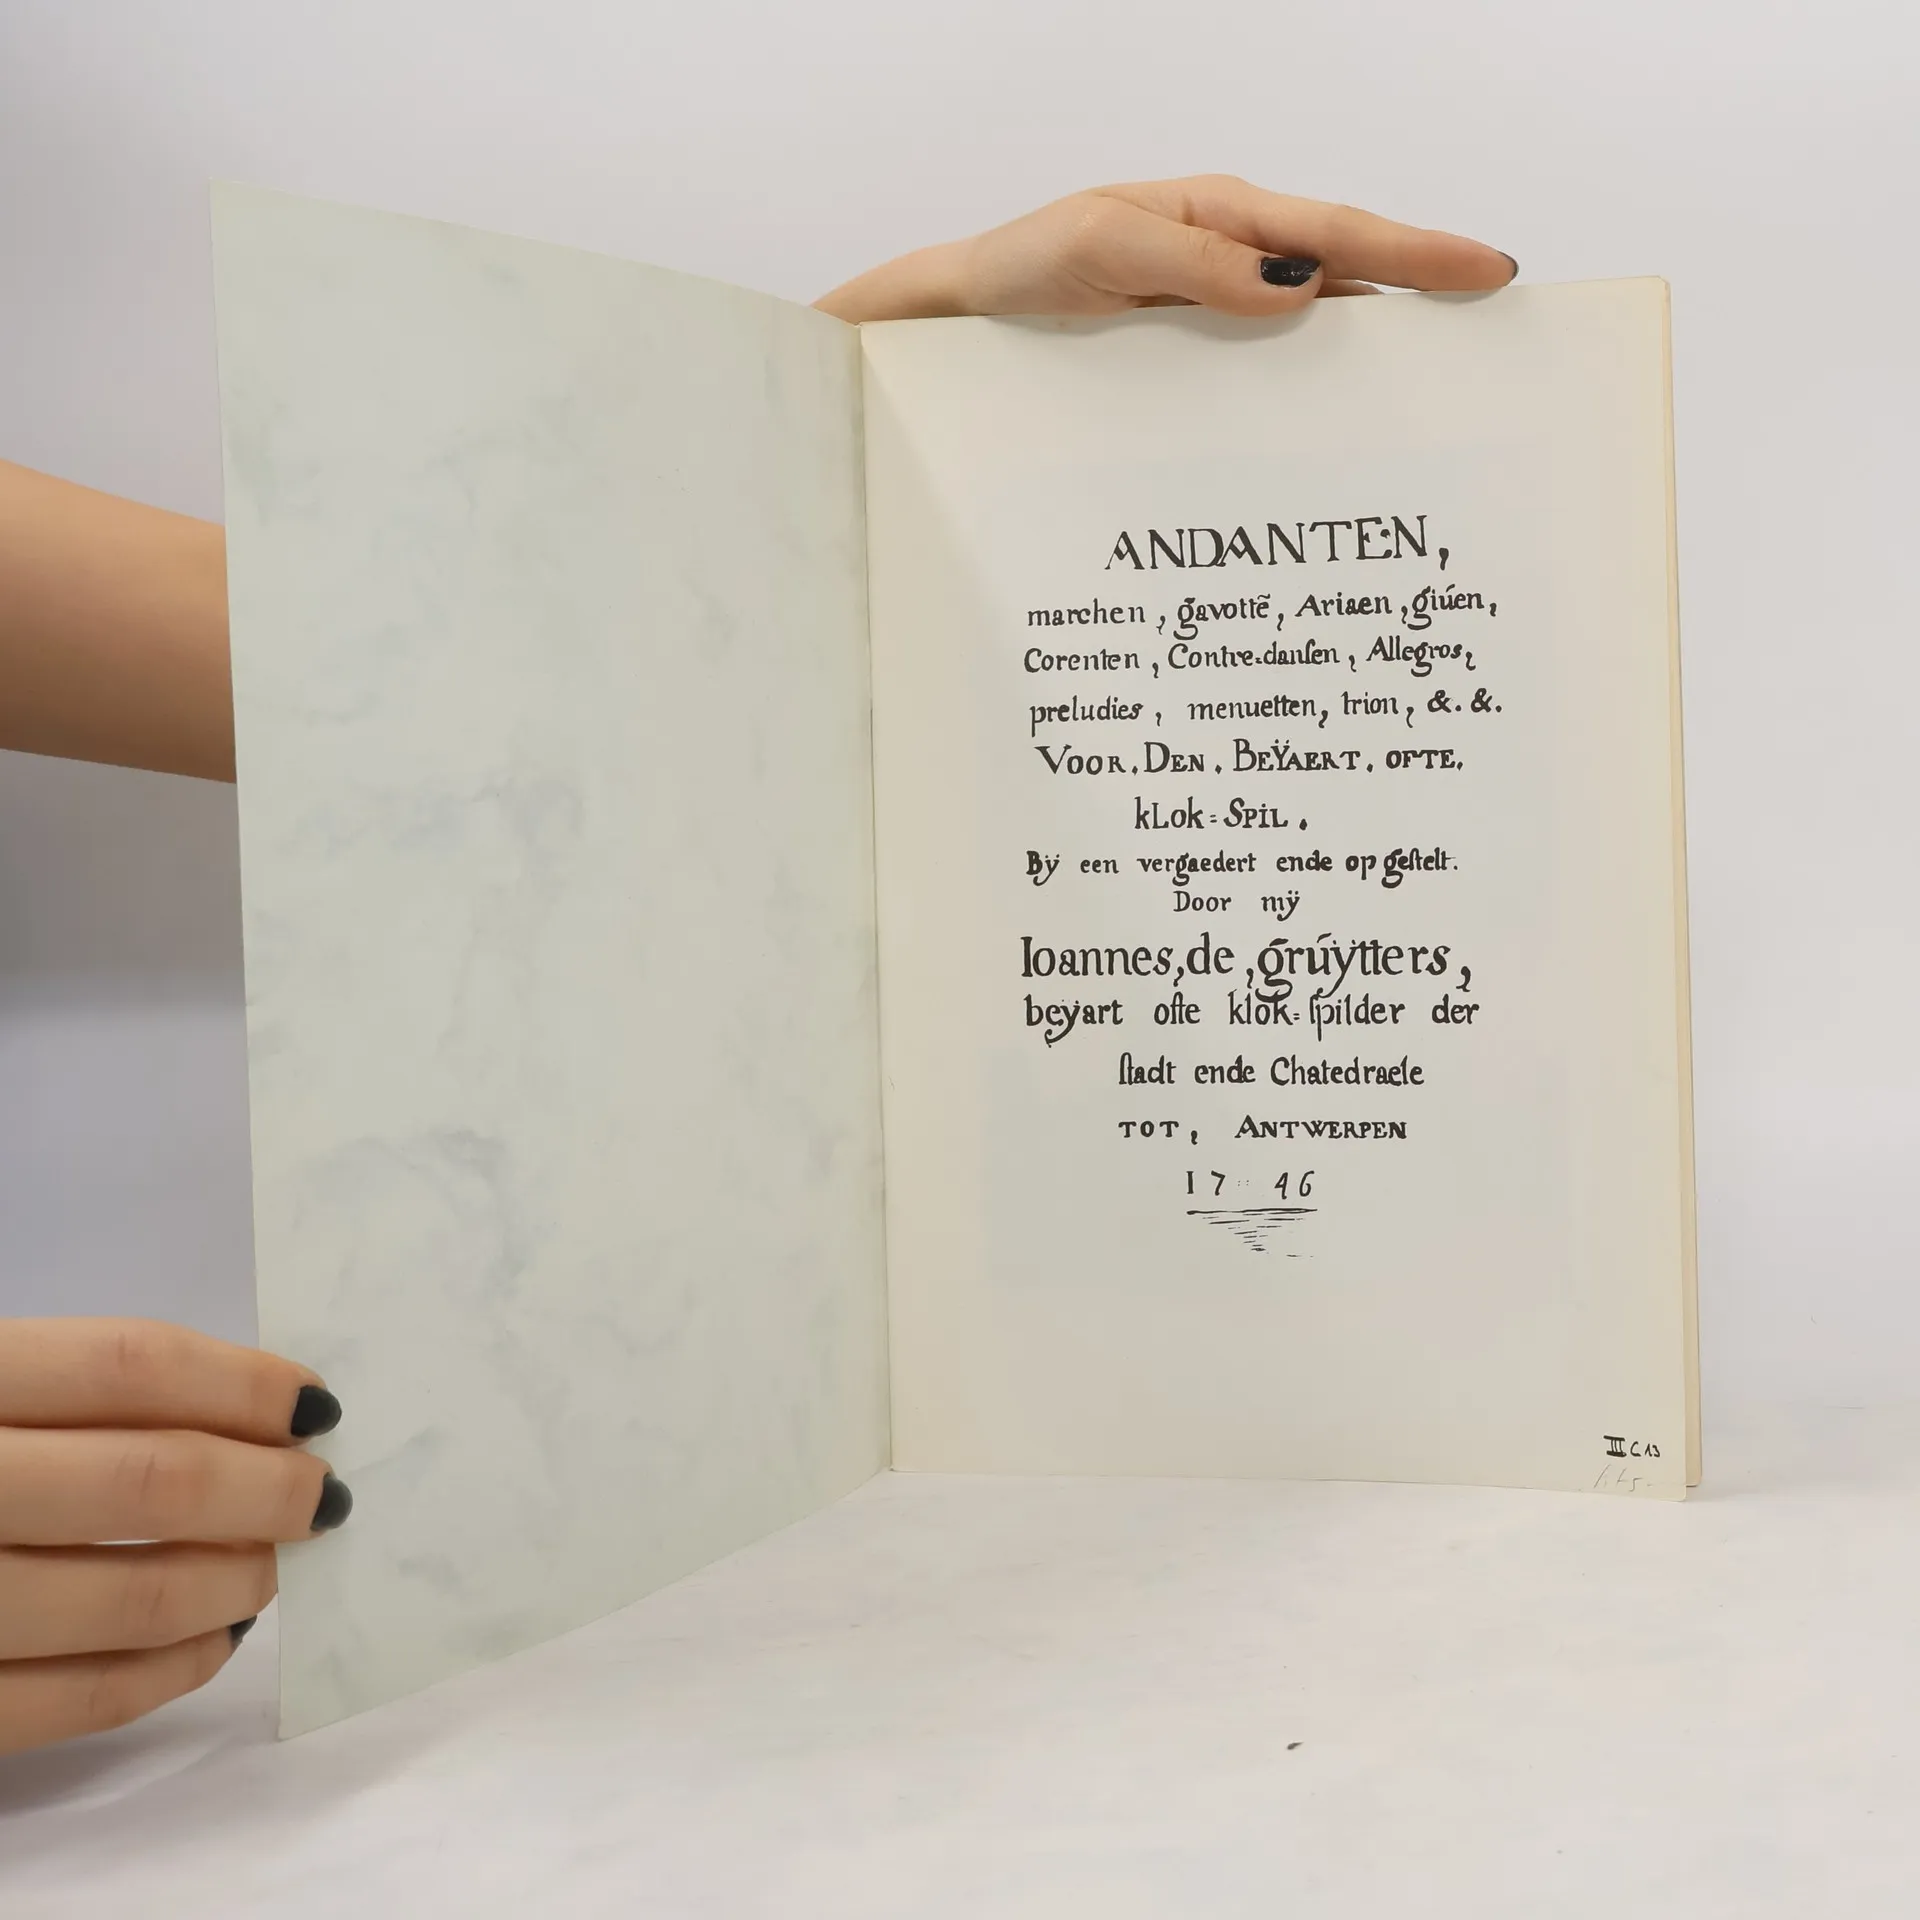 ANDANTEN,
marchen, gavottẽ, Ariaen, giúen,
Corenten, Contre=danſen, Allegros,
preludies, menuetten, trion, &. &.
VOOR. DEN. BEŸAERT. OFTE.
kLok=SPiL.
Bÿ een vergaedert ende op geſtelt.
Door mÿ
Ioannes, de, grúÿtters,
beÿart ofte klok=ſpilder der
ſtadt ende Chatedraele
TOT, ANTWERPEN
17::46
III C 13